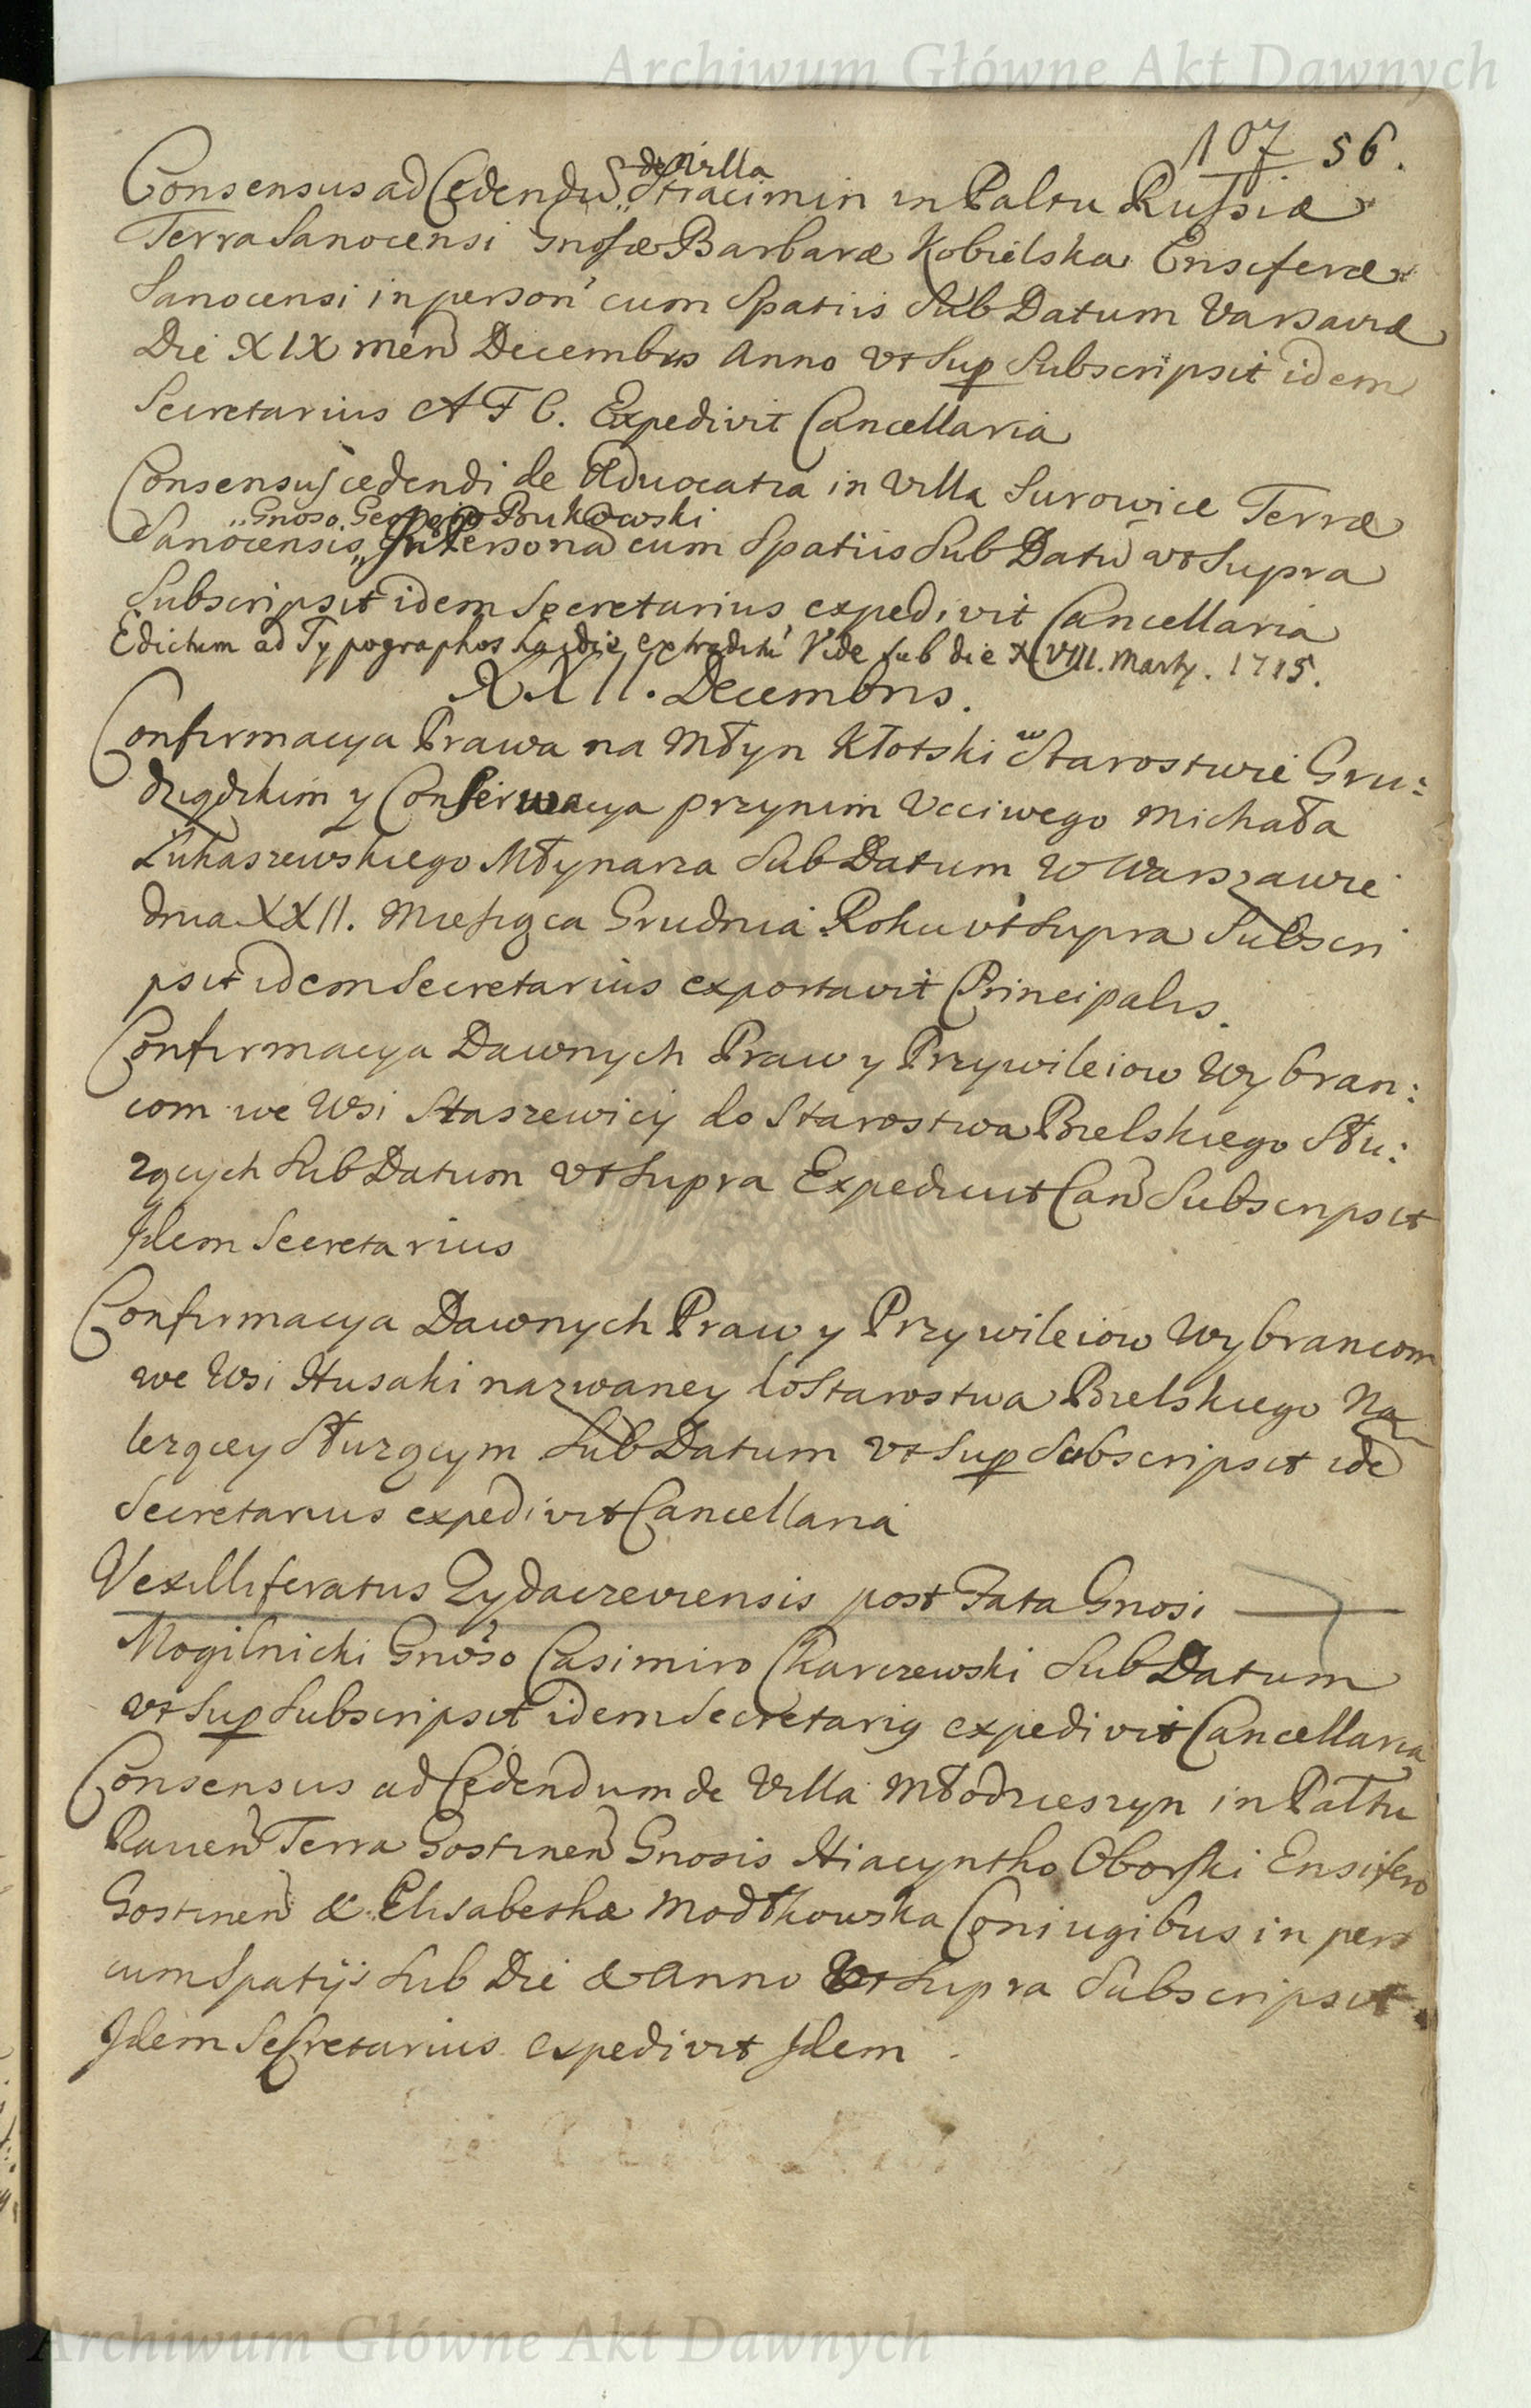 Archiwum Główne Akt Dawnych
107 56.
de Villa
Consensus ad Cedendũ Stracimin in Paltu Russiæ
Terra Sanocensi Gnosæ Barbaræ Kobielska Ensiferæ
Sanocensi in person cum Spatiis Sub Datum Varsaviæ
Die XIX men Decembris Anno vt Sup Subscripsit idem
Secretarius A F C. Expedivit Cancellaria
Consensus cedendi de Advocatia in Villa Surowice Terræ
Gnoso Georgio Bukowski
Sanocensis, In Persona cum Spatiis Sub Datũ vt Supra
Subscripsit idem Secretarius expedivit Cancellaria
Edictum ad Typographos hac die extradit Vide sub die XVIII. Marty. 1715.
XXII. Decembris.
Confirmacya Prawa na Młyn Kłotski w Starostwie Gru:
dziądzkim y Conserwacya przynim Vcciwego Michała
Łukaszewskiego Młynarza Sub Datum w Warszawie
dnia XXII. Miesiąca Grudnia Roku vt Supra Subscri
psit idem Secretarius exportavit Principalis.
Confirmacya Dawnych Praw y Przywileiow Wybran:
com we Wsi Staszewicy do Starostwa Bielskiego Słu:
zących Sub Datum vt Supra Expedivit Can Subscripsit
Idem Secretarius
Confirmacya Dawnych Praw y Przywileiow Wybrancom
we Wsi Husaki nazwaney do Starostwa Bielskiego Na
lezącey Słuzącym Sub Datum vt Sup Subscripsit idẽ
Secretarius expedivit Cancellaria
Vexilliferatus Zydaczeviensis post Fata Gnosi
Mogilnicki Gnoso Casimiro Skarczewski Sub Datum
vt Sup Subscripsit idem Secretarig expedivit Cancellaria
Consensus ad Cedendum de Villa Młodzieszyn in Paltu
Raven Terra Gostinen Gnosis Hiacyntho Oborski Ensifero
Gostinen & Elisabetha Modłkowska Coniugibus in pers
cum Spatijs Sub Die & Anno vt Supra Subscripsit
Idem Secretarius expedivit Idem
Archiwum Główne Akt Dawnych